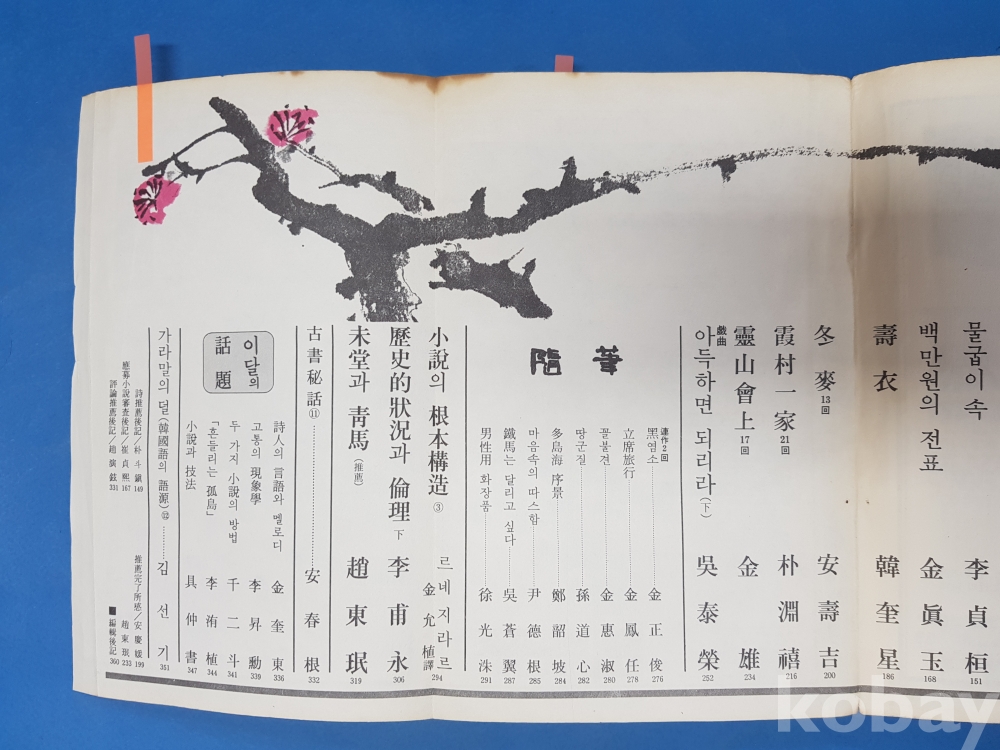 물굽이 속 李貞桓 151
백만원의 전표 金眞玉 168
壽衣 韓奎星 186
冬麥 13回 安壽吉 200
霞村一家 21回 朴淵禧 216
靈山會上 17回 金雄 234
戱曲 아득하면 되리라 (下) 吳泰榮 252
隨筆
連作2回
黑염소 金正俊 276
立席旅行 金鳳任 278
꼴불견 金惠淑 280
땅군질 孫道心 282
多島海 序景 鄭韶坡 284
마음속의 따스함 尹德根 285
鐵馬는 달리고 싶다 吳蒼翼 287
男性用 화장품 徐光洙 291
小說의 根本構造 ③ 르네 지라르 金允植譯 294
歷史的狀況과 倫理 下 李甫永 306
未堂과 靑馬 (推薦) 趙東珉 319
古書秘話 ⑪ 安春根 332
이달의 話題
詩人의 言語와 멜로디 金奎東 336
고통의 現象學 李昇勳 339
두 가지 小說의 방법 千二斗 341
「흔들리는 孤島」 李洧植 344
小說과 技法 具仲書 347
가라말의 덜 (韓國語의 語源) ⑫ 김선기 351
詩推薦後記／朴斗鎭 149
應募小說審査後記／崔貞熙 167
評論推薦後記／趙演鉉 331
推薦完了所感／安慶媛 199
趙東珉 233
■編輯後記 360
kobay